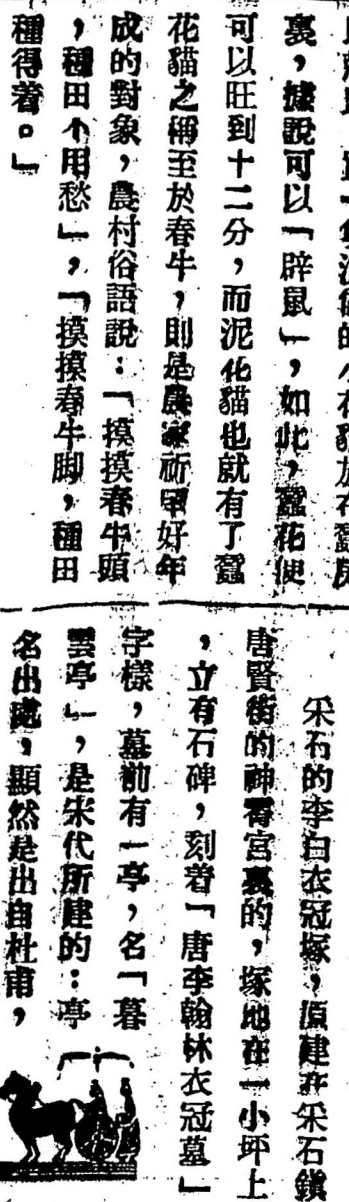 的小花貓於在蠶房
裏,據說可以「辟鼠」,如此,蠶花便
可以旺到十二分,而泥花貓也就有了蠶
花貓之稱至於春牛,則是農家祈望好年
成的對象,農村俗語說:「摸摸春牛頭
,種田不用愁」,「摸摸春牛脚,種田
種得着。」
采石的李白衣冠塚,原建在采石鎮
唐賢街的神霄宮裏的,塚地在一小坪上
,立有石碑,刻着「唐李翰林衣冠墓」
字樣,墓前有一亭,名「暮
雲亭」,是宋代所建的:亭
名出處,顯然是出自杜甫,